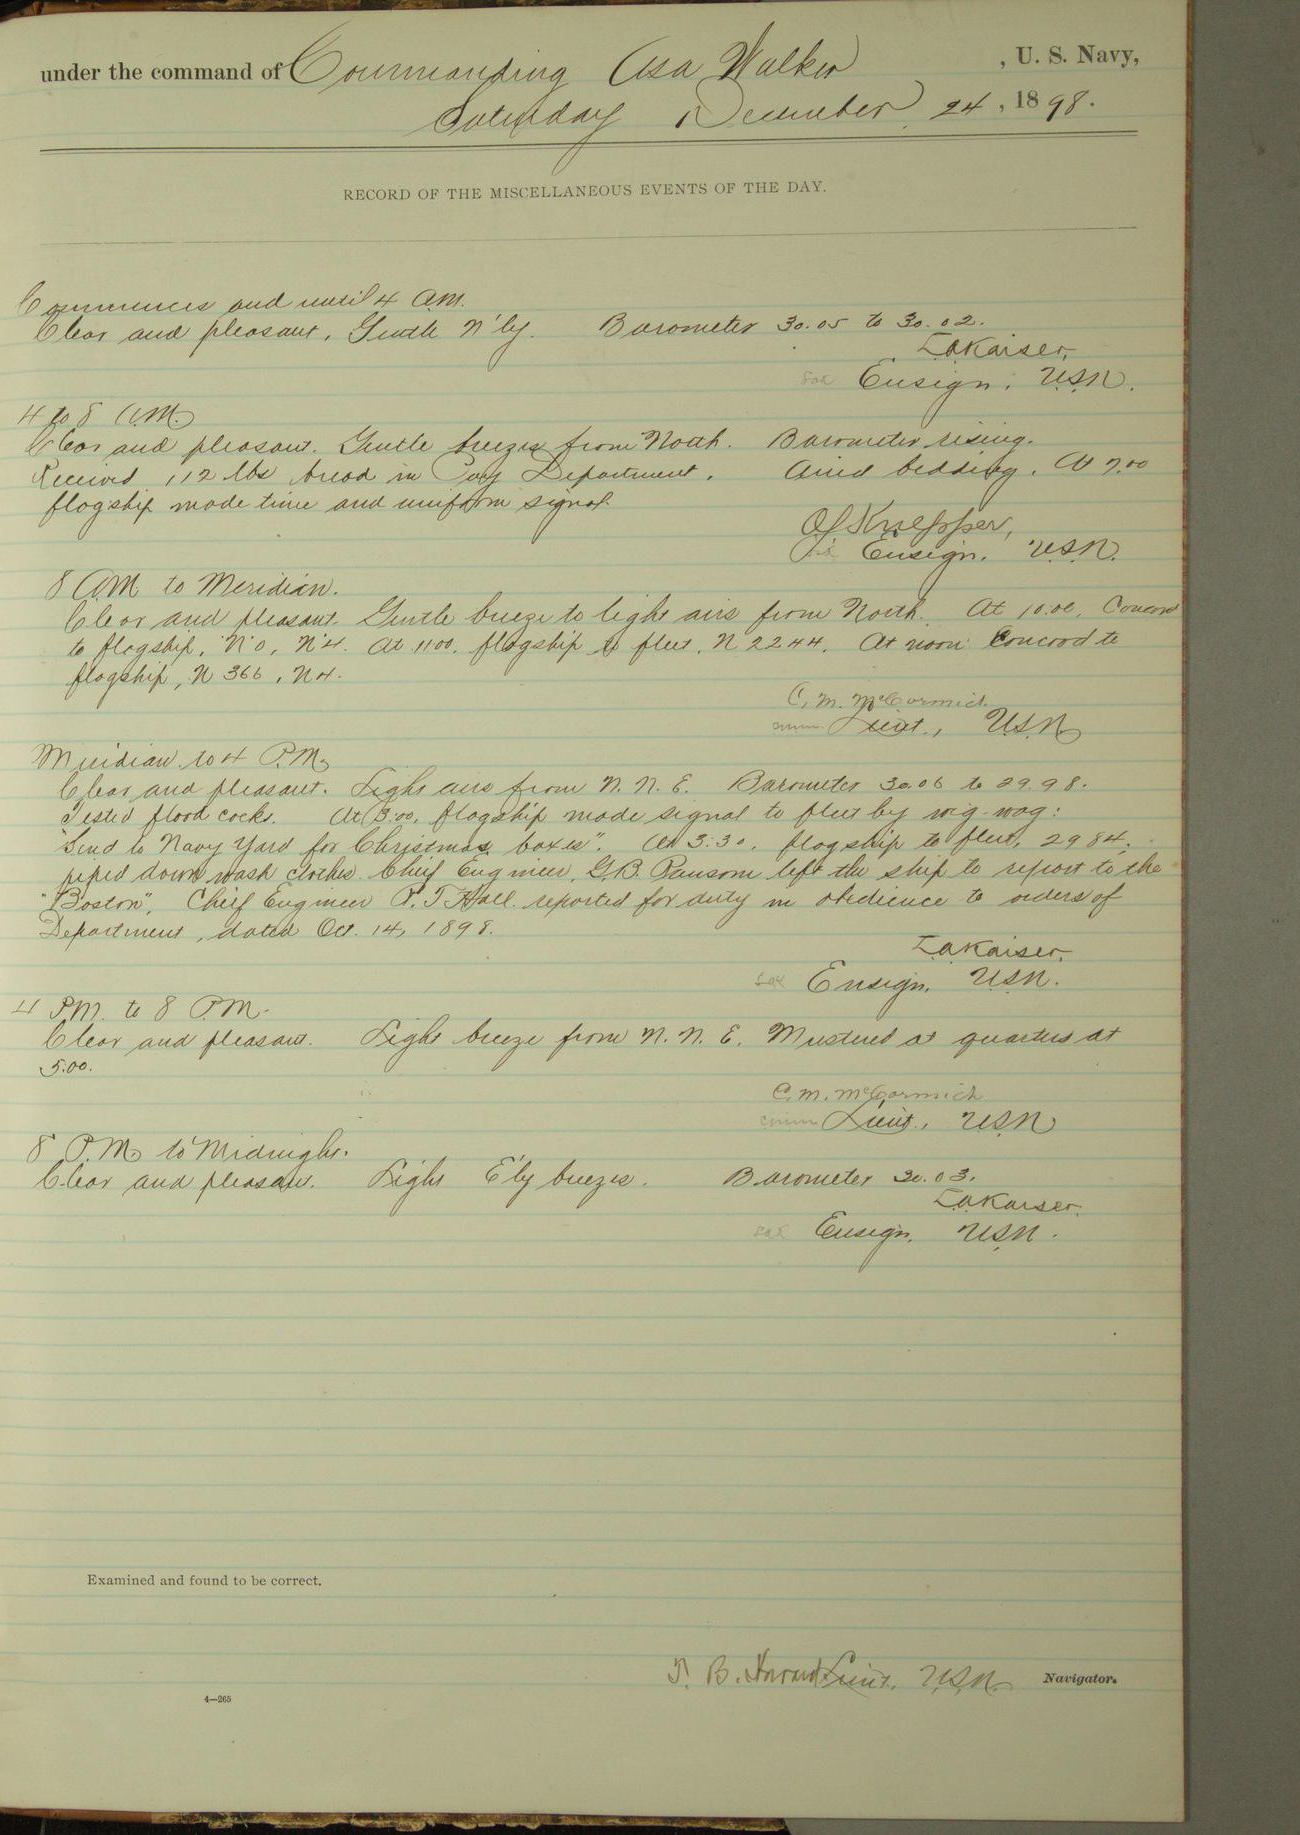 under the command of Commanding Asa Walker , U. S. Navy,
Saturday December 24 , 1898.
RECORD OF THE MISCELLANEOUS EVENTS OF THE DAY.
Commences and until 4 A.M.
Clear and pleasant. Gentle N'ly. Barometer 30.05 to 30.02.
LAKaiser,
Ensign, U.S.N.
4 to 8 A.M.
Clear and pleasant. Gentle breezes from North. Barometer rising.
Received 112 lbs bread in Pay Department. Aired bedding. At 7.00
flagship made time and uniform signal.
Knepper,
Ensign, U.S.N.
8 A.M. to Meridian.
Clear and pleasant. Gentle breeze to light airs from North. At 10.00, Concord
to flagship, N'0, N'4. At 11.00, flagship to fleet, N 2244. At noon Concord to
flagship, N 366, N4.
C. M. McCormick
Lieut., U.S.N.
Meridian to 4 P.M.
Clear and pleasant. Light airs from N. N. E. Barometer 30.06 to 29.98.
Tested flood cocks. At 3.00, flagship made signal to fleet by wig-wag:
"Send to Navy Yard for Christmas boxes". At 3.30, flagship to fleet, 2984,
piped down wash clothes. Chief Engineer, G.B. Ransom left the ship to report to the
"Boston". Chief Engineer R. T. Hall reported for duty in obedience to orders of
Department, dated Oct. 14, 1898.
LAKaiser,
Ensign, U.S.N.
4 P.M. to 8 P.M.
Clear and pleasant. Light breeze from N. N. E. Mustered at quarters at
5.00.
C. M. McCormick
Lieut., U.S.N
8 P.M. to Midnight.
Clear and pleasant. Light E'ly breezes. Barometer 30.03.
LAKaiser,
Ensign, U.S.N.
Examined and found to be correct.
T. B. Howard Lieut. U.S.N. Navigator.
4—265